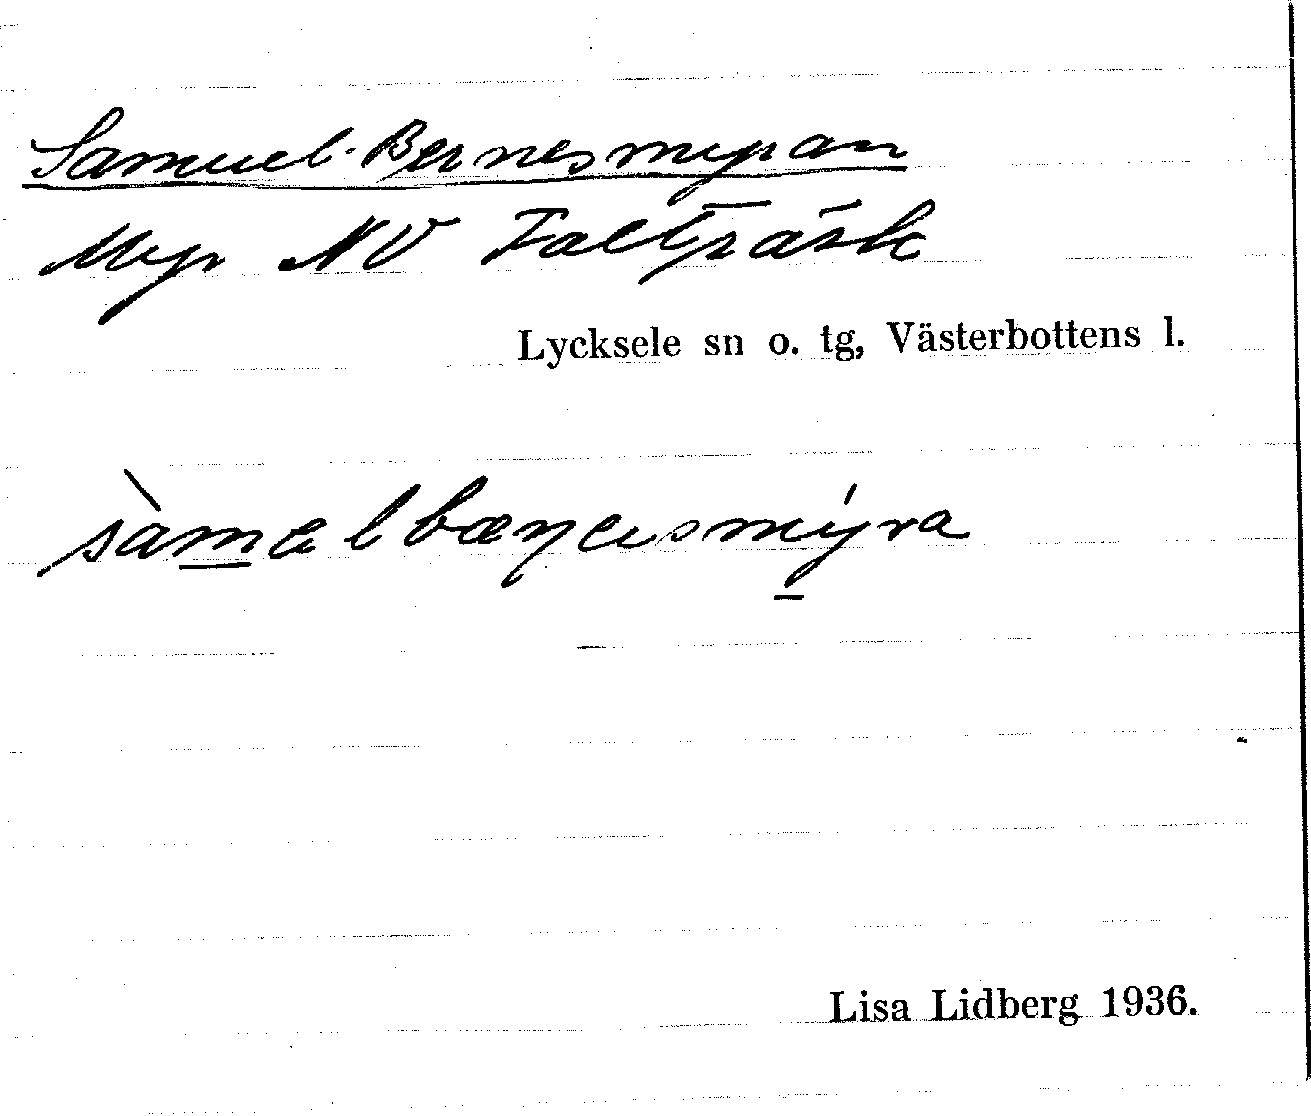 Samuel-Bernesmyran
Myr NV Falträsk
Lycksele sn o. tg, Västerbottens l.
Lisa Lidberg 1936.